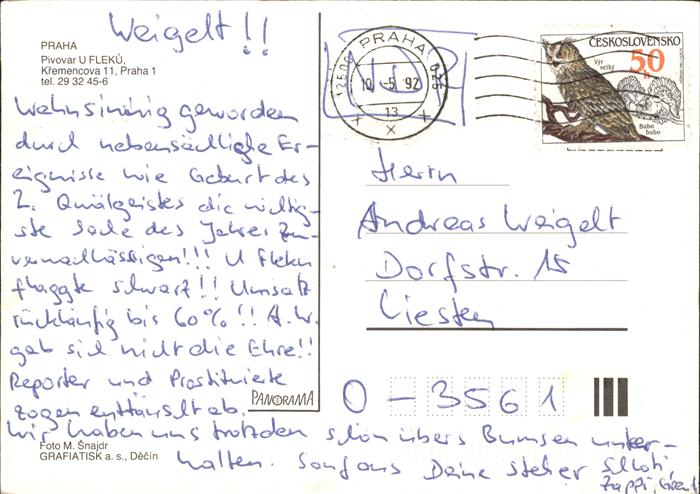 Weigelt!!
PRAHA
Pivovar U FLEKŮ,
Křemencova 11, Praha 1
tel. 29 32 45-6
Wahnsinnig geworden
durch nebensächliche Er-
eignisse wie Geburt des
2. Quälgeistes die wichtig-
ste Sache des Jahres zu
vernachlässigen!!! U Fleku
flaggte schwarz!! Umsatz
rückläufig bis 60%!! A.W.
gab sich nicht die Ehre!!
Reporter und Prostituierte
zogen enttäuscht ab.
Wir haben uns trotzden schön übers Bumsen unter-
halten. Sonst
Deine
Zappi,
PRAHA 025
10.-5.92
13
x
ČESKOSLOVENSKO
50 h
Výr velký
Bubo
bubo
Herrn
Andreas Weigelt
Dorfstr. 15
Liesten
O-3561
PANORAMA
Foto M. Šnajdr
GRAFIATISK a. s., Děčín